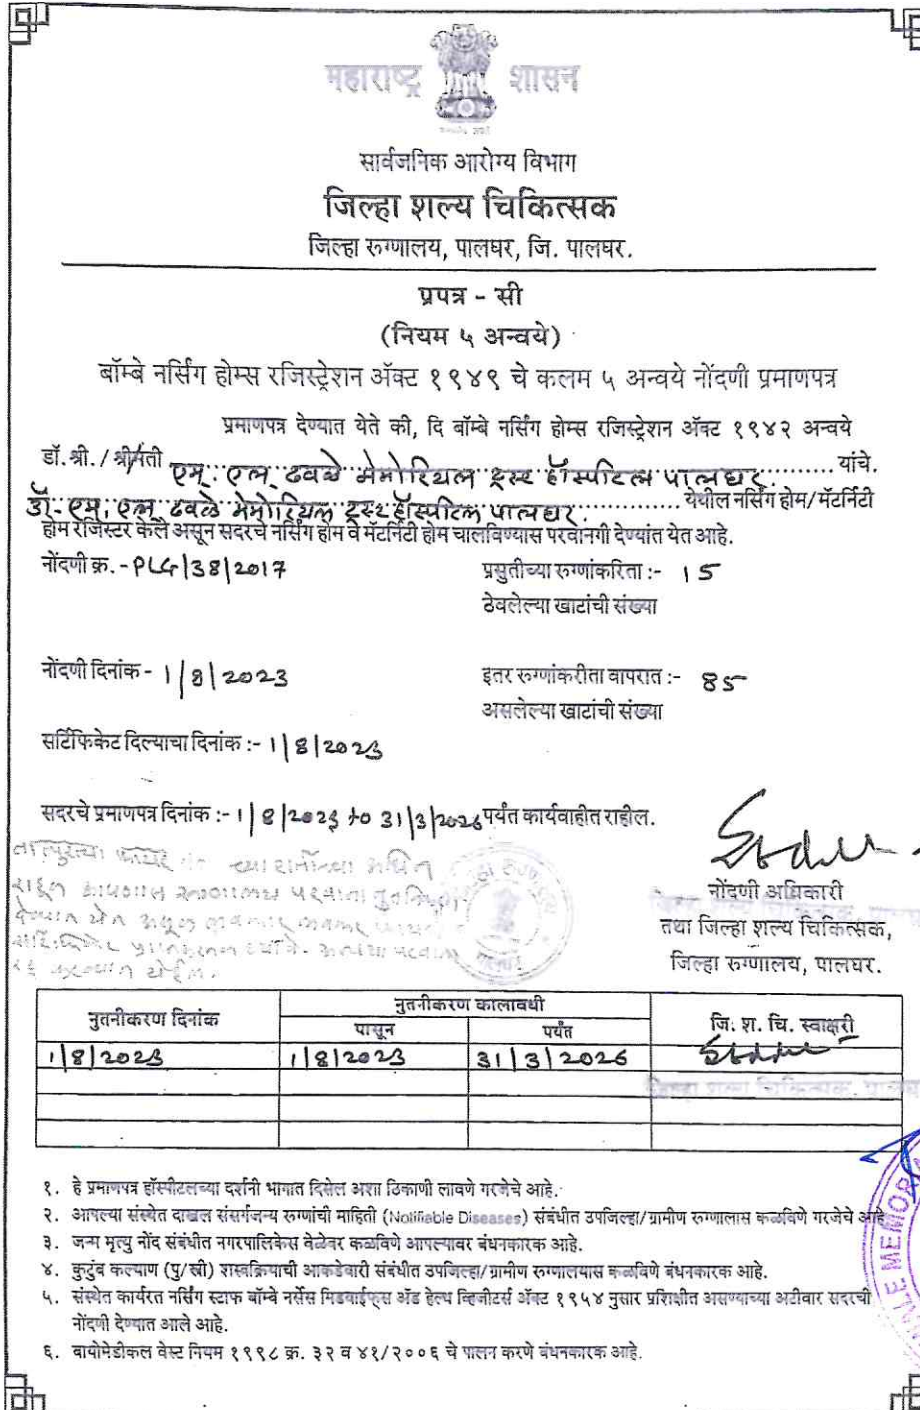 महाराष्ट्र शासन
सार्वजनिक आरोग्य विभाग
जिल्हा शल्य चिकित्सक
जिल्हा रुग्णालय, पालघर, जि. पालघर.
प्रपत्र - सी
(नियम ५ अन्वये)
बॉम्बे नर्सिंग होम्स रजिस्ट्रेशन अ‍ॅक्ट १९४९ चे कलम ५ अन्वये नोंदणी प्रमाणपत्र
प्रमाणपत्र देण्यात येते की, दि बॉम्बे नर्सिंग होम्स रजिस्ट्रेशन अ‍ॅक्ट १९४२ अन्वये
डॉ.श्री./श्रीमती एम. एल. ढवळे मेमोरियल ट्रस्ट हॉस्पिटल पालघर. यांचे.
डॉ. एम. एल. ढवळे मेमोरियल ट्रस्ट हॉस्पिटल पालघर. येथील नर्सिंग होम/मॅटर्निटी
होम रजिस्टर केले असून सदरचे नर्सिंग होम व मॅटर्निटी होम चालविण्यास परवानगी देण्यांत येत आहे.
नोंदणी क्र. - PLG/38/2017 प्रसुतीच्या रुग्णांकरिता :- 15
ठेवलेल्या खाटांची संख्या
नोंदणी दिनांक - 1/8/2023 इतर रुग्णांकरीता वापरात :- 85
असलेल्या खाटांची संख्या
सर्टिफिकेट दिल्याचा दिनांक :- 1/8/2023
सदरचे प्रमाणपत्र दिनांक :- 1/8/2023 to 31/3/2026 पर्यंत कार्यवाहीत राहील.
नोंदणी अधिकारी
तथा जिल्हा शल्य चिकित्सक,
जिल्हा रुग्णालय, पालघर.
नुतनीकरण दिनांक नुतनीकरण कालावधी जि. श. चि. स्वाक्षरी
पासून पर्यंत
1/8/2023 1/8/2023 31/3/2026
जिल्हा शल्य चिकित्सक, पालघ
१. हे प्रमाणपत्र हॉस्पीटलच्या दर्शनी भागात दिसेल अशा ठिकाणी लावणे गरजेचे आहे.
२. आपल्या संस्थेत दाखल संसर्गजन्य रुग्णांची माहिती (Notifiable Diseases) संबंधीत उपजिल्हा/ग्रामीण रुग्णालास कळविणे गरजेचे आहे
३. जन्म मृत्यु नोंद संबंधीत नगरपालिकेस वेळेवर कळविणे आपल्यावर बंधनकारक आहे.
४. कुटुंब कल्याण (पु/स्त्री) शस्त्रक्रियाची आकडेवारी संबंधीत उपजिल्हा/ग्रामीण रुग्णालयास कळविणे बंधनकारक आहे.
५. संस्थेत कार्यरत नर्सिंग स्टाफ बॉम्बे नर्सेस मिडवाईफ्स अ‍ॅड हेल्थ व्हिजीटर्स अ‍ॅक्ट १९५४ नुसार प्रशिक्षीत असण्याच्या अटीवार सदरची
नोंदणी देण्यात आले आहे.
६. बायोमेडीकल वेस्ट नियम १९९८ क्र. ३२ व ४१/२००६ चे पालन करणे बंधनकारक आहे.